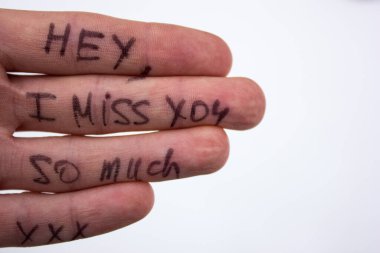 HEY,
I MISS YOU
SO MUCH
XXX